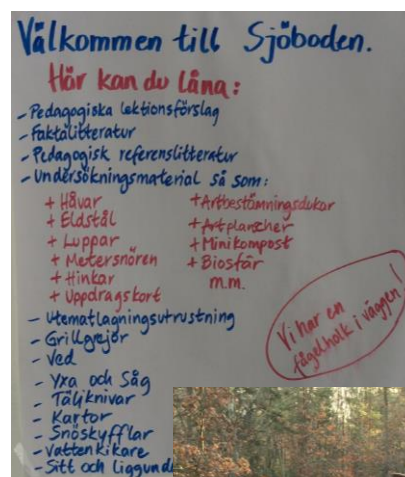 Välkommen till Sjöboden.
Här kan du låna:
- Pedagogiska lektionsförslag
- Faktalitteratur
- Pedagogisk referenslitteratur
- Undersökningsmaterial så som:
+ Håvar
+ Eldstål
+ Luppar
+ Metersnören
+ Hinkar
+ Uppdragskort
+ Artbestämningsdukar
+ Artplanscher
+ Minikompost
+ Biosfär
m.m.
- Utematlagningsutrustning
- Grillgrejor
- Ved
- Yxa och Såg
- Täljknivar
- Kartor
- Snöskyfflar
- Vattenkikare
- Sitt och
Vi har en
fågelholk i väggen!